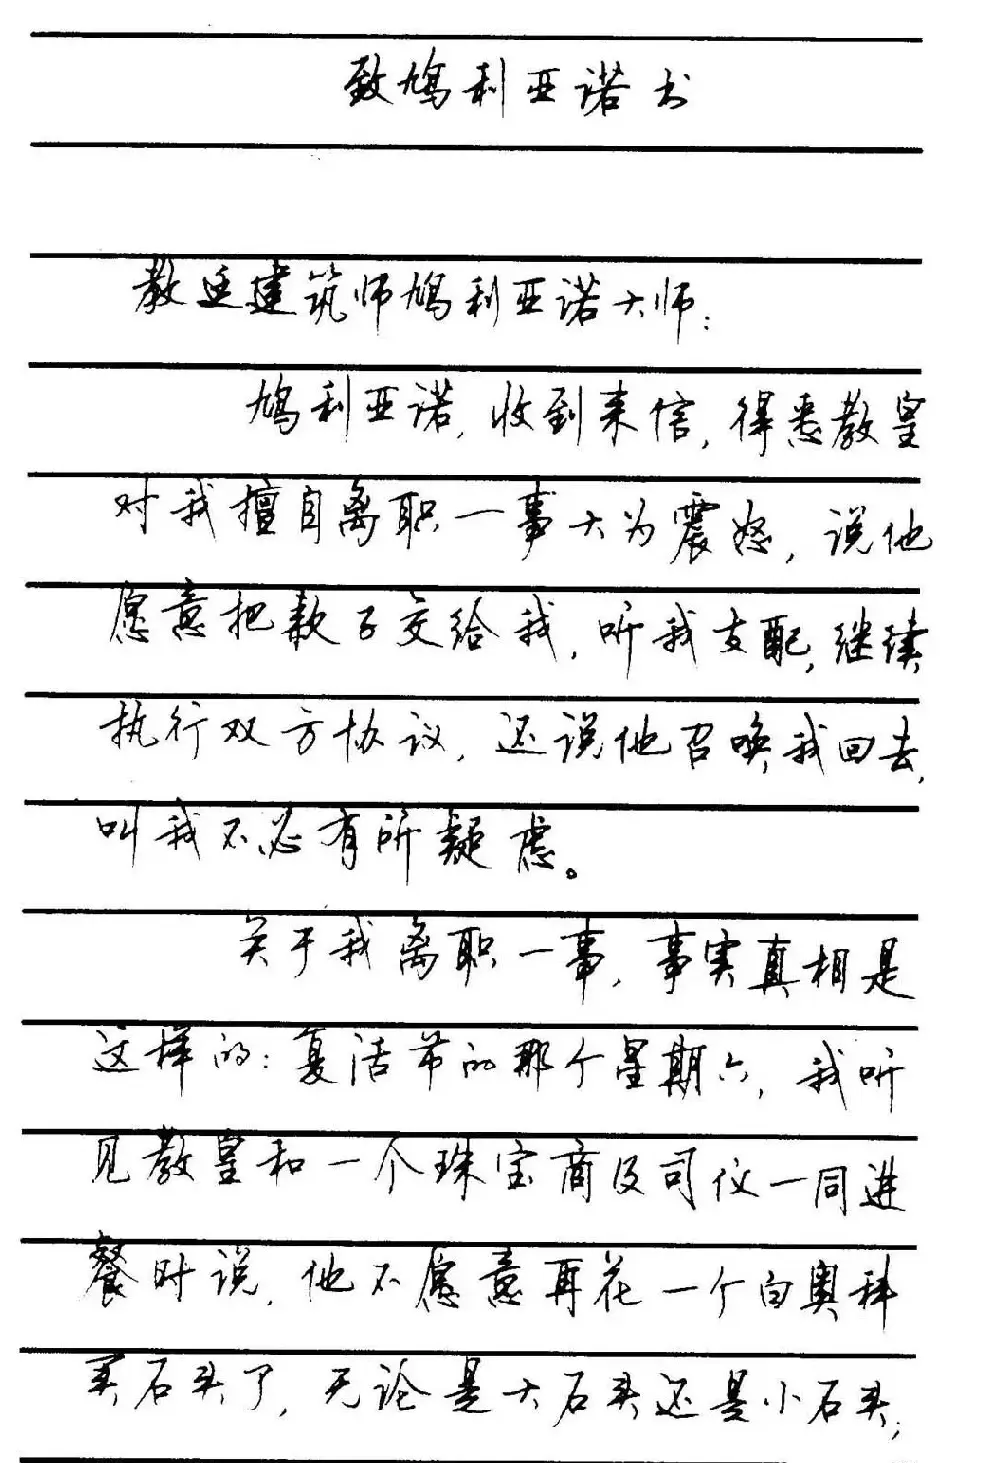 致鸠利亚诺书
教廷建筑师鸠利亚诺大师：
鸠利亚诺，收到来信，得悉教皇
对我擅自离职一事大为震怒，说他
愿意把款子交给我，听我支配，继续
执行双方协议，还说他召唤我回去，
叫我不必有所疑虑。
关于我离职一事，事实真相是
这样的：复活节的那个星期六，我听
见教皇和一个珠宝商及司仪一同进
餐时说，他不愿意再花一个白奥科
买石头了，无论是大石头还是小石头，